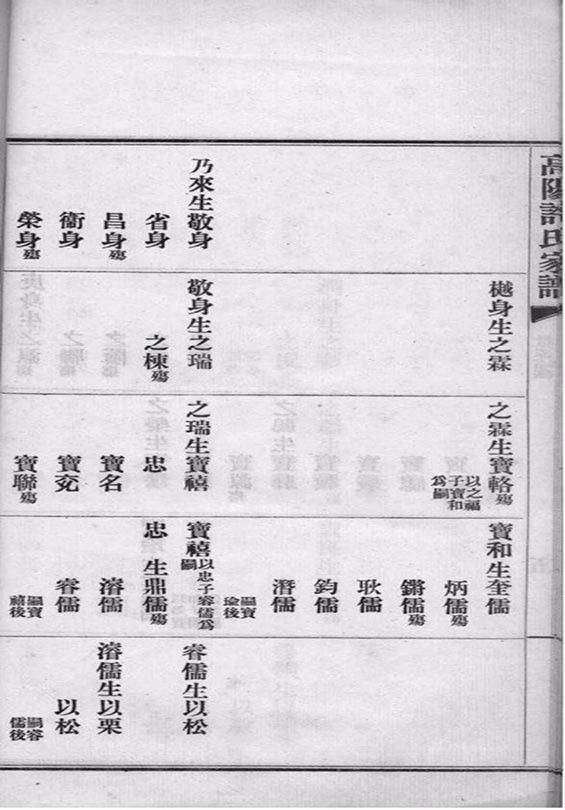 高陽許氏家譜
乃來生敬身
省身
昌身殤
衞身
榮身殤
樾身生之霖
敬身生之瑞
之棟殤
之霖生寶輅殤
以之福子寶和爲嗣
之瑞生寶禧
忠
寶名
寶兗
寶聯殤
寶和生奎儒
炳儒殤
鏘儒殤
耿儒
鈞儒
潛儒
嗣寶後
寶禧以忠子睿儒爲嗣
忠生鼎儒殤
濬儒
睿儒
嗣寶禧後
睿儒生以松
濬儒生以栗
以松
嗣睿儒後